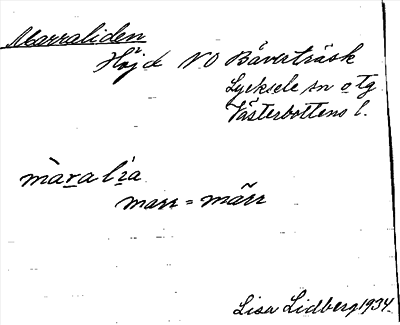 Marraliden
Höjd NO Bäverträsk
Lycksele sn o tg
Västerbottens l.
màralìa
marr = märr
Lisa Lidberg 1934.